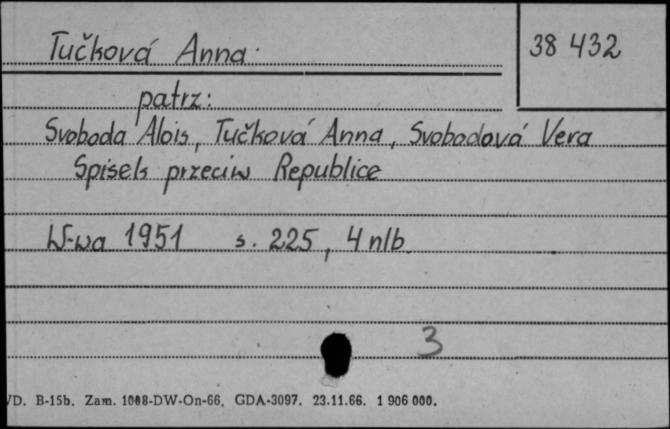 Tučková Anna
38 432
patrz:
Svoboda Alois, Tučková Anna, Svobodová Vera
Spisek przeciw Republice
W-wa 1951 s. 225, 4 nlb.
3
VD. B-15b. Zam. 1088-DW-On-66. GDA-3097. 23.11.66. 1 906 000.